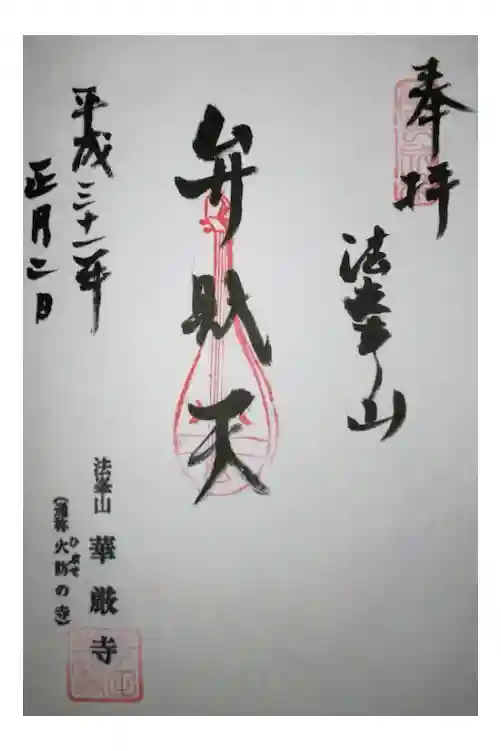 奉拝
法峯山
弁財天
平成三十一年
正月二日
法峯山 華厳寺
(通称 火防の寺)
ひぶせ